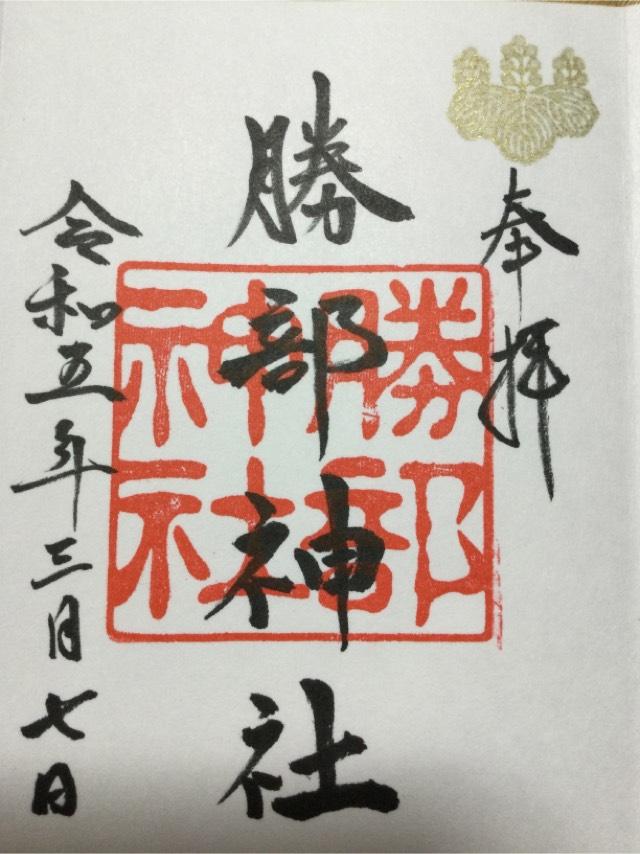 奉拝
勝部神社
勝部神社
令和五年三月七日